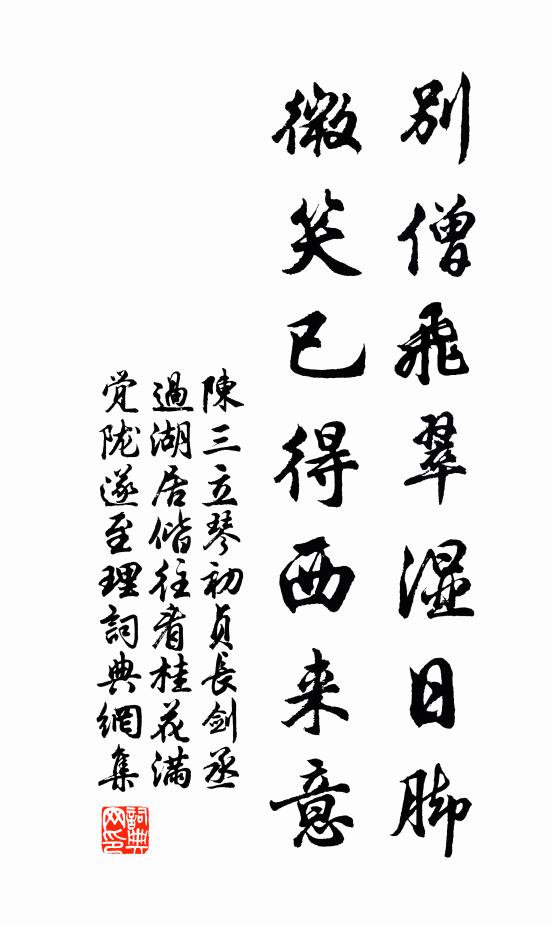 別僧飛翠湿日脚
微笑已得西来意
陳三立琴初貞長劍丞
過湖居偕往看桂花滿
覚陇遂至理詞典網集
詞典
网印